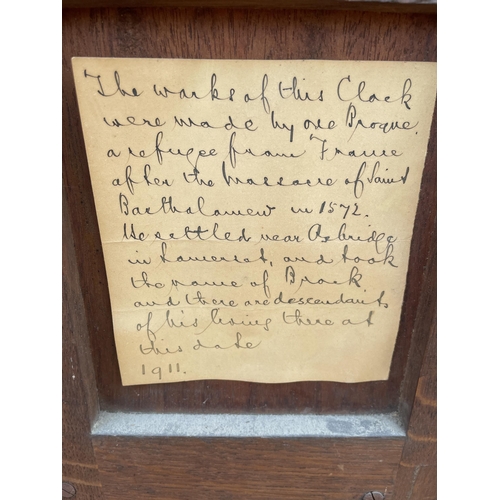 The works of this Clock
were made by one Broque,
a refugee from France
after the Massacre of Saint
Bartholomew in 1572.
He settled near Axbridge
in Somerset, and took
the name of Brock
and there are descendants
of his living there at
this date
1911.